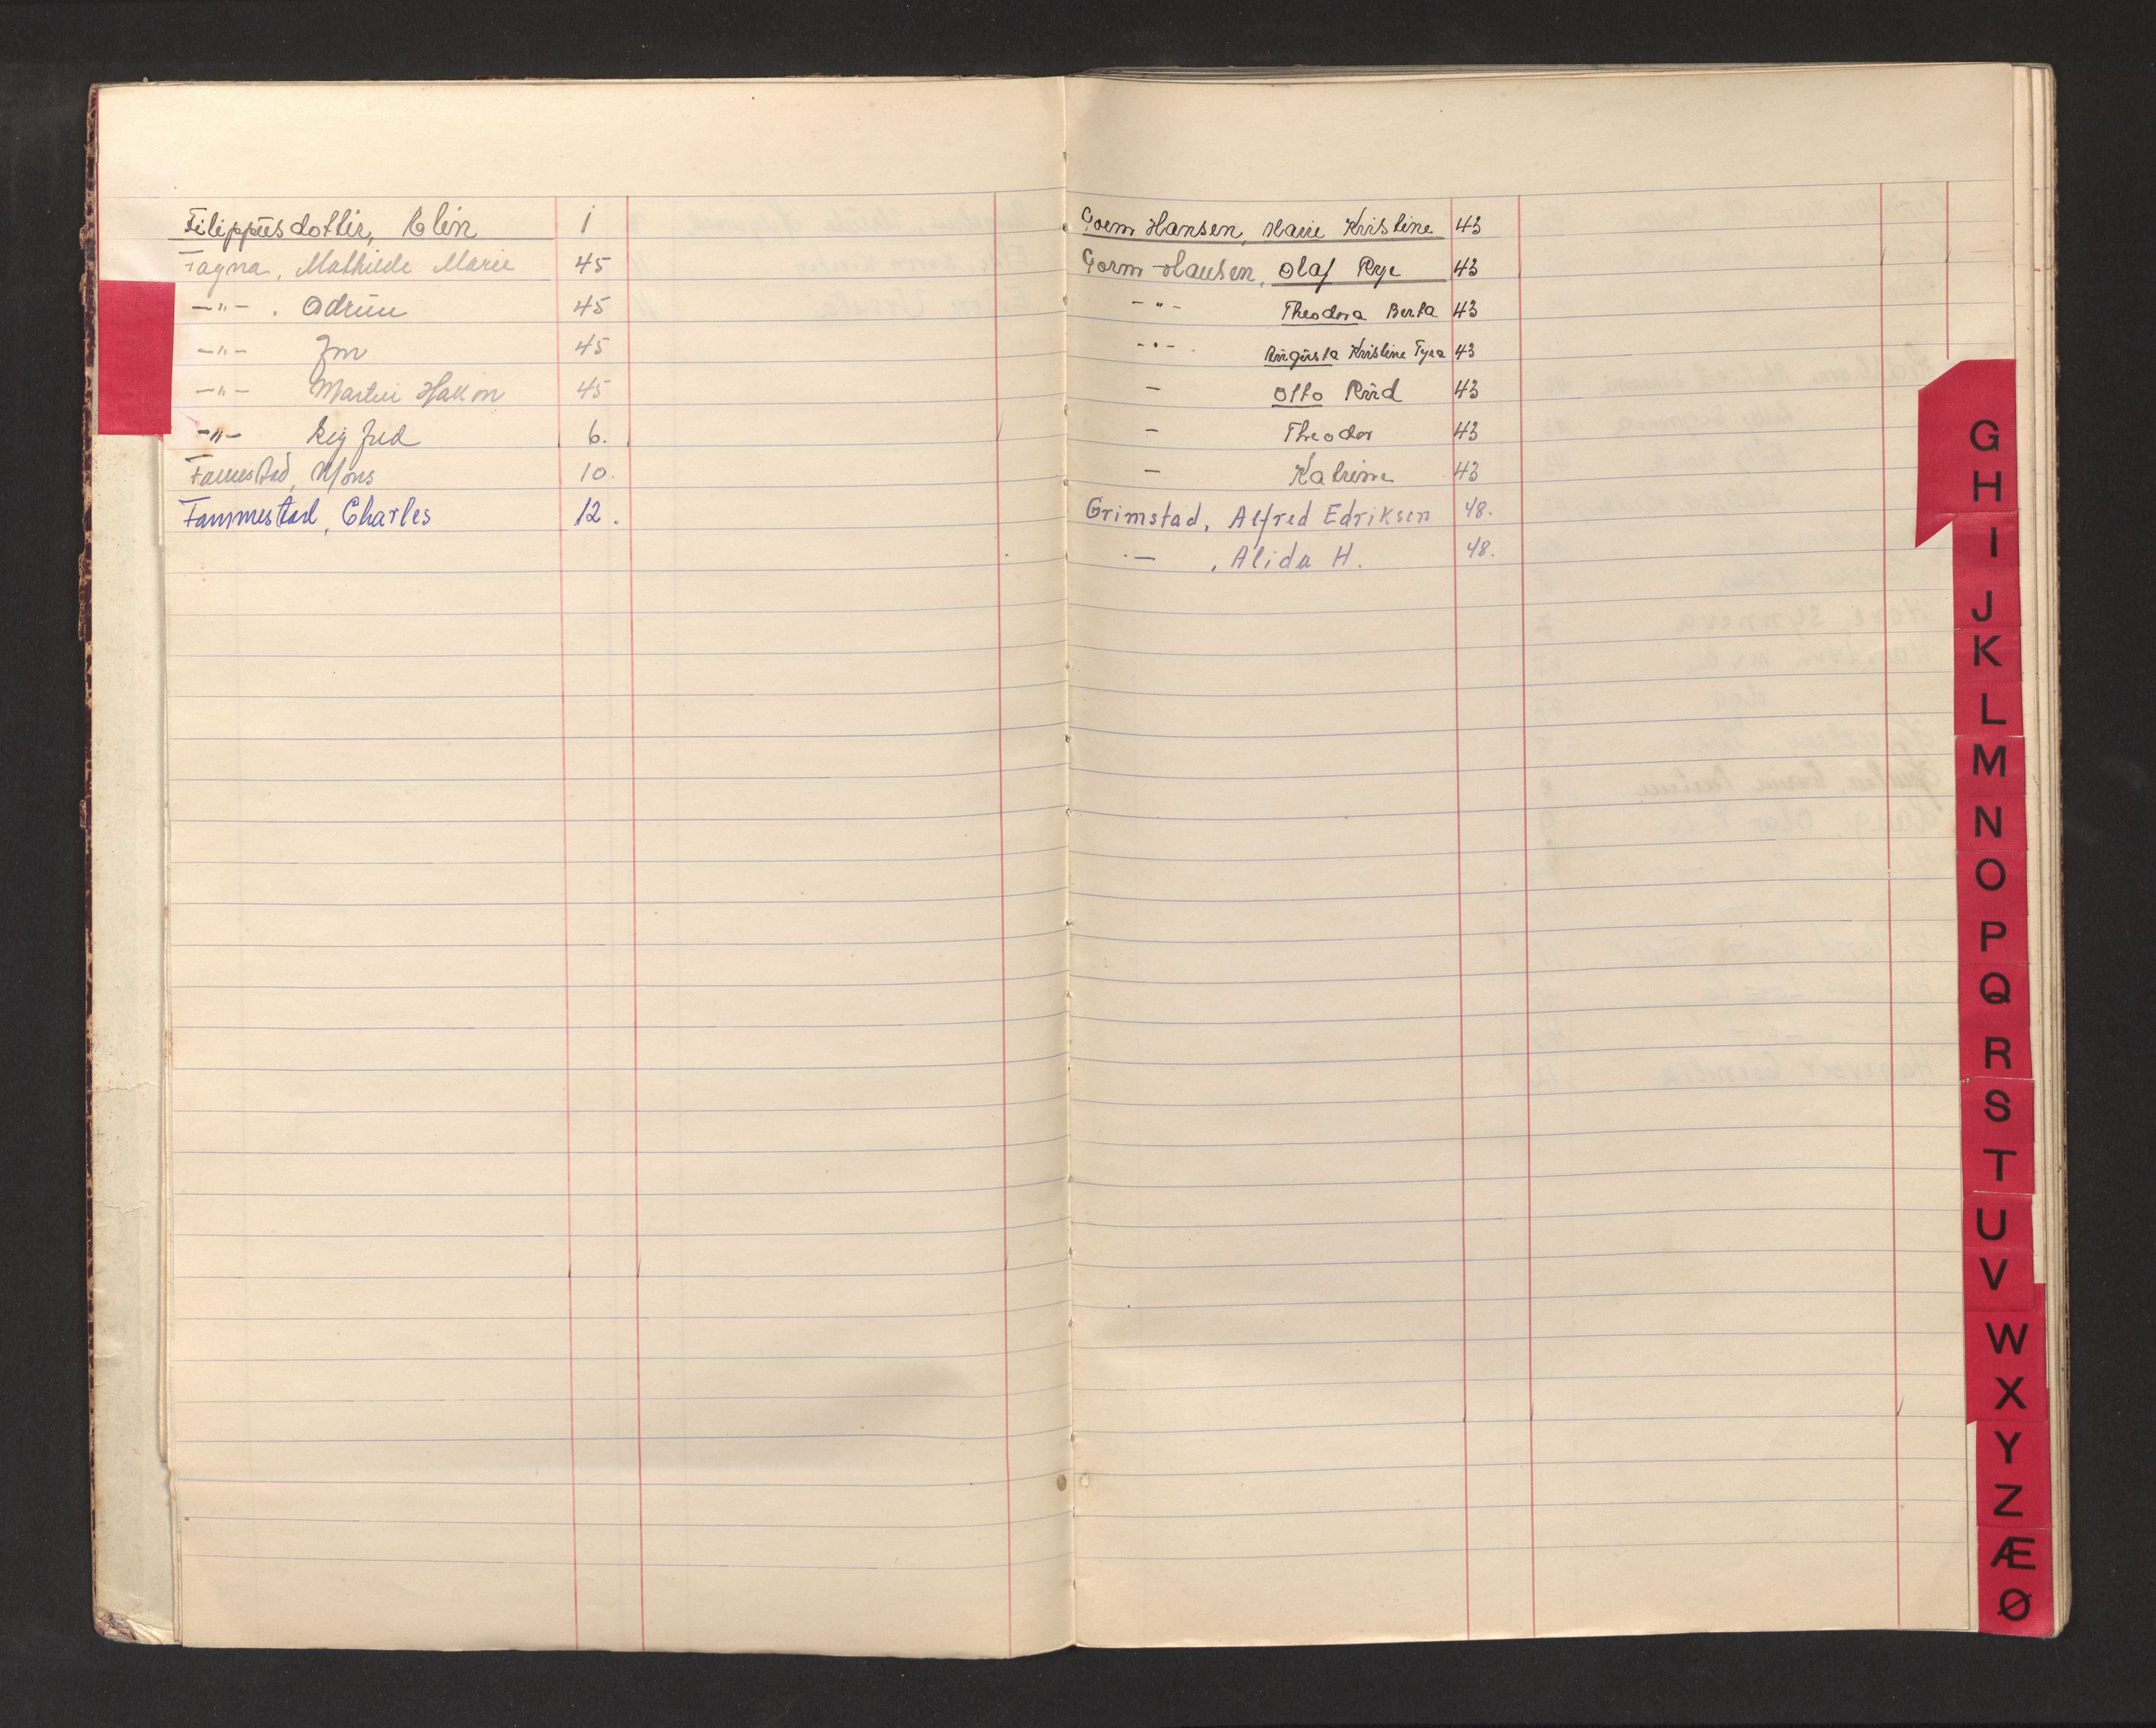 Filippusdottir, Elin 1
Fagna, Mathilde Marie 45
—"— . Odrun 45
—"— 45
—"— Martin Hakon 45
—"— Sigfred 6.
Famestad, Mons 10.
Fammestad, Charles 12.
Gorm Hansen, Marie Kristine 43
Gorm-Hansen, Olaf Rye 43
—"— Theodora Berta 43
—"— Augusta Kristine Tyra 43
— Otto Rud 43
— Theodor 43
— Katrine 43
Grimstad, Alfred Edriksen 48.
— , Alida H. 48.
G
H
I
J
K
L
M
N
O
P
Q
R
S
T
U
V
W
X
Y
Z
Æ
Ø